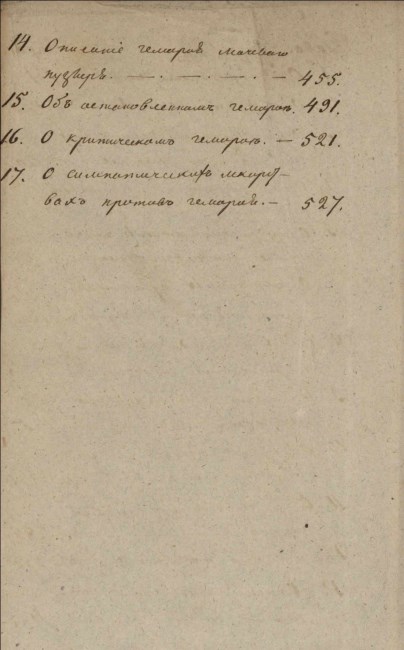 14. Описаніе гемороя мочеваго
пузыря. — . — . — . — 455.
15. Объ остановленномъ гемороѣ. 491.
16. О критическомъ гемороѣ. — 521.
17. О симпатическихъ лекарст-
вахъ противъ гемороя. — 527.